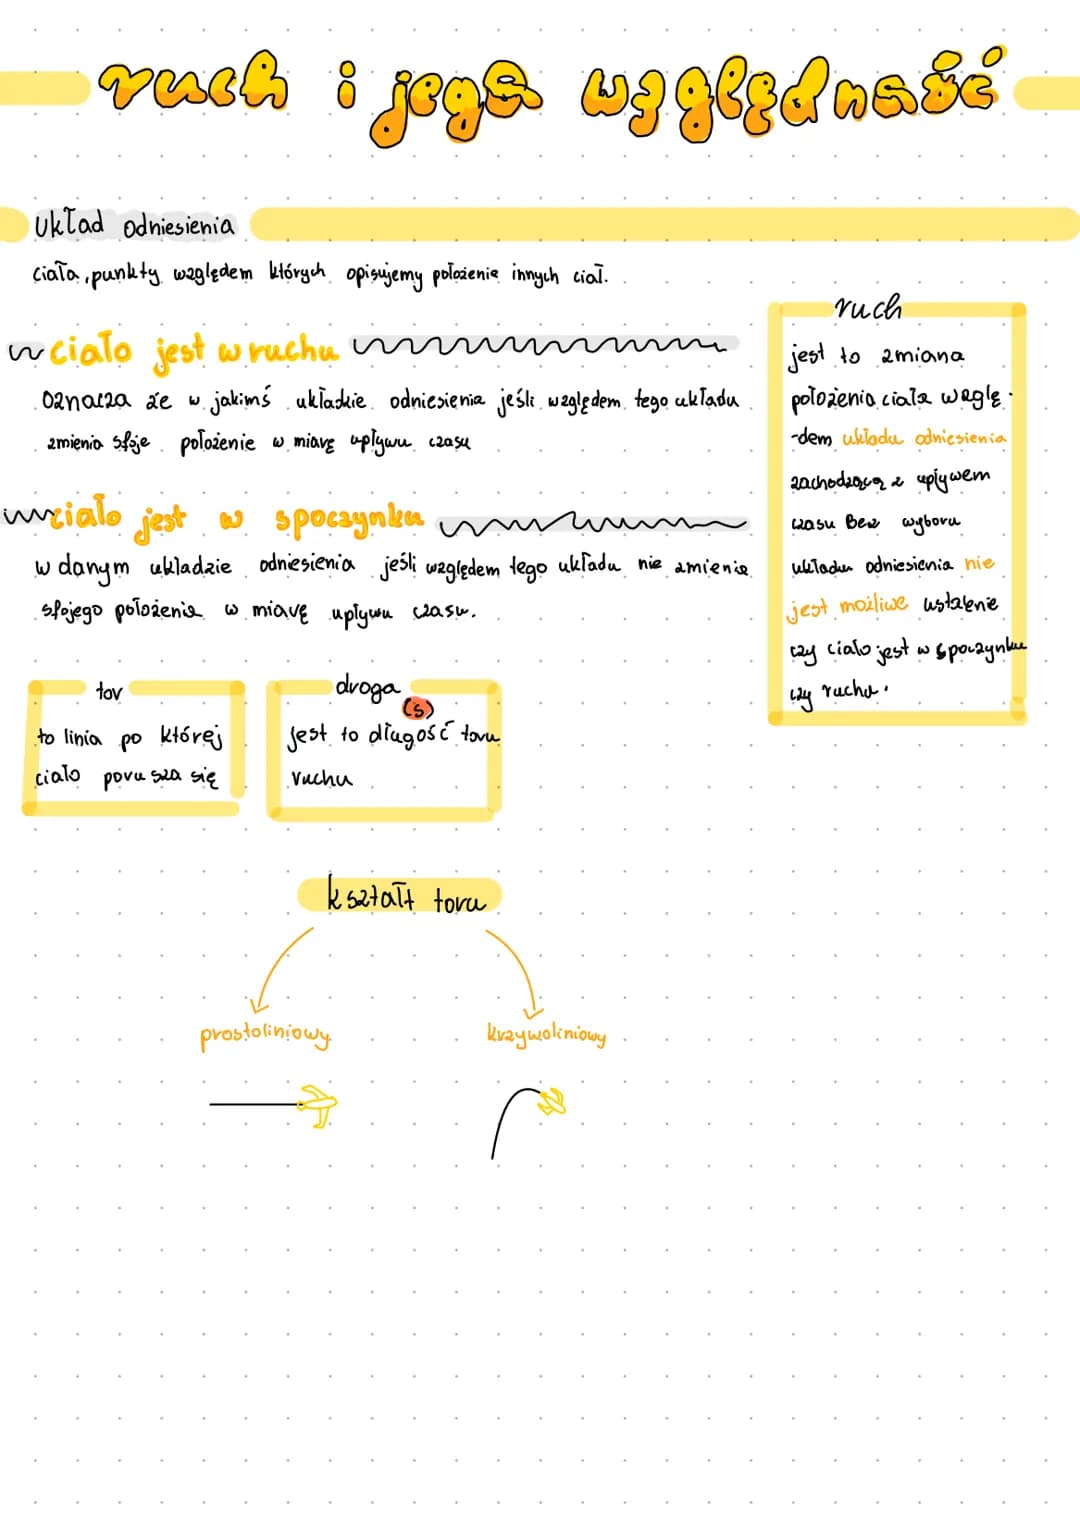 ruch i jego względność
Układ odniesienia
ciała, punkty względem których opisujemy położenie innych ciał.
ciało jest w ruchu
Oznacza że w jakimś układzie odniesienia jeśli względem tego układu
zmienia sfoje położenie w miarę upływu czasu
ciało jest w spoczynku
w danym układzie odniesienia jeśli względem tego układu nie zmienia
sfojego położenia w miarę upływu czasu.
ruch
jest to zmiana
położenia ciała wzglę-
-dem układu odniesienia
zachodzącą z upływem
czasu Bez wyboru
układu odniesienia nie
jest możliwe ustalenie
czy ciało jest w spoczynku
czy ruchu.
tor
to linia po której
ciało porusza się
droga
(s)
jest to długość toru
ruchu
kształt toru
prostoliniowy
krzywoliniowy